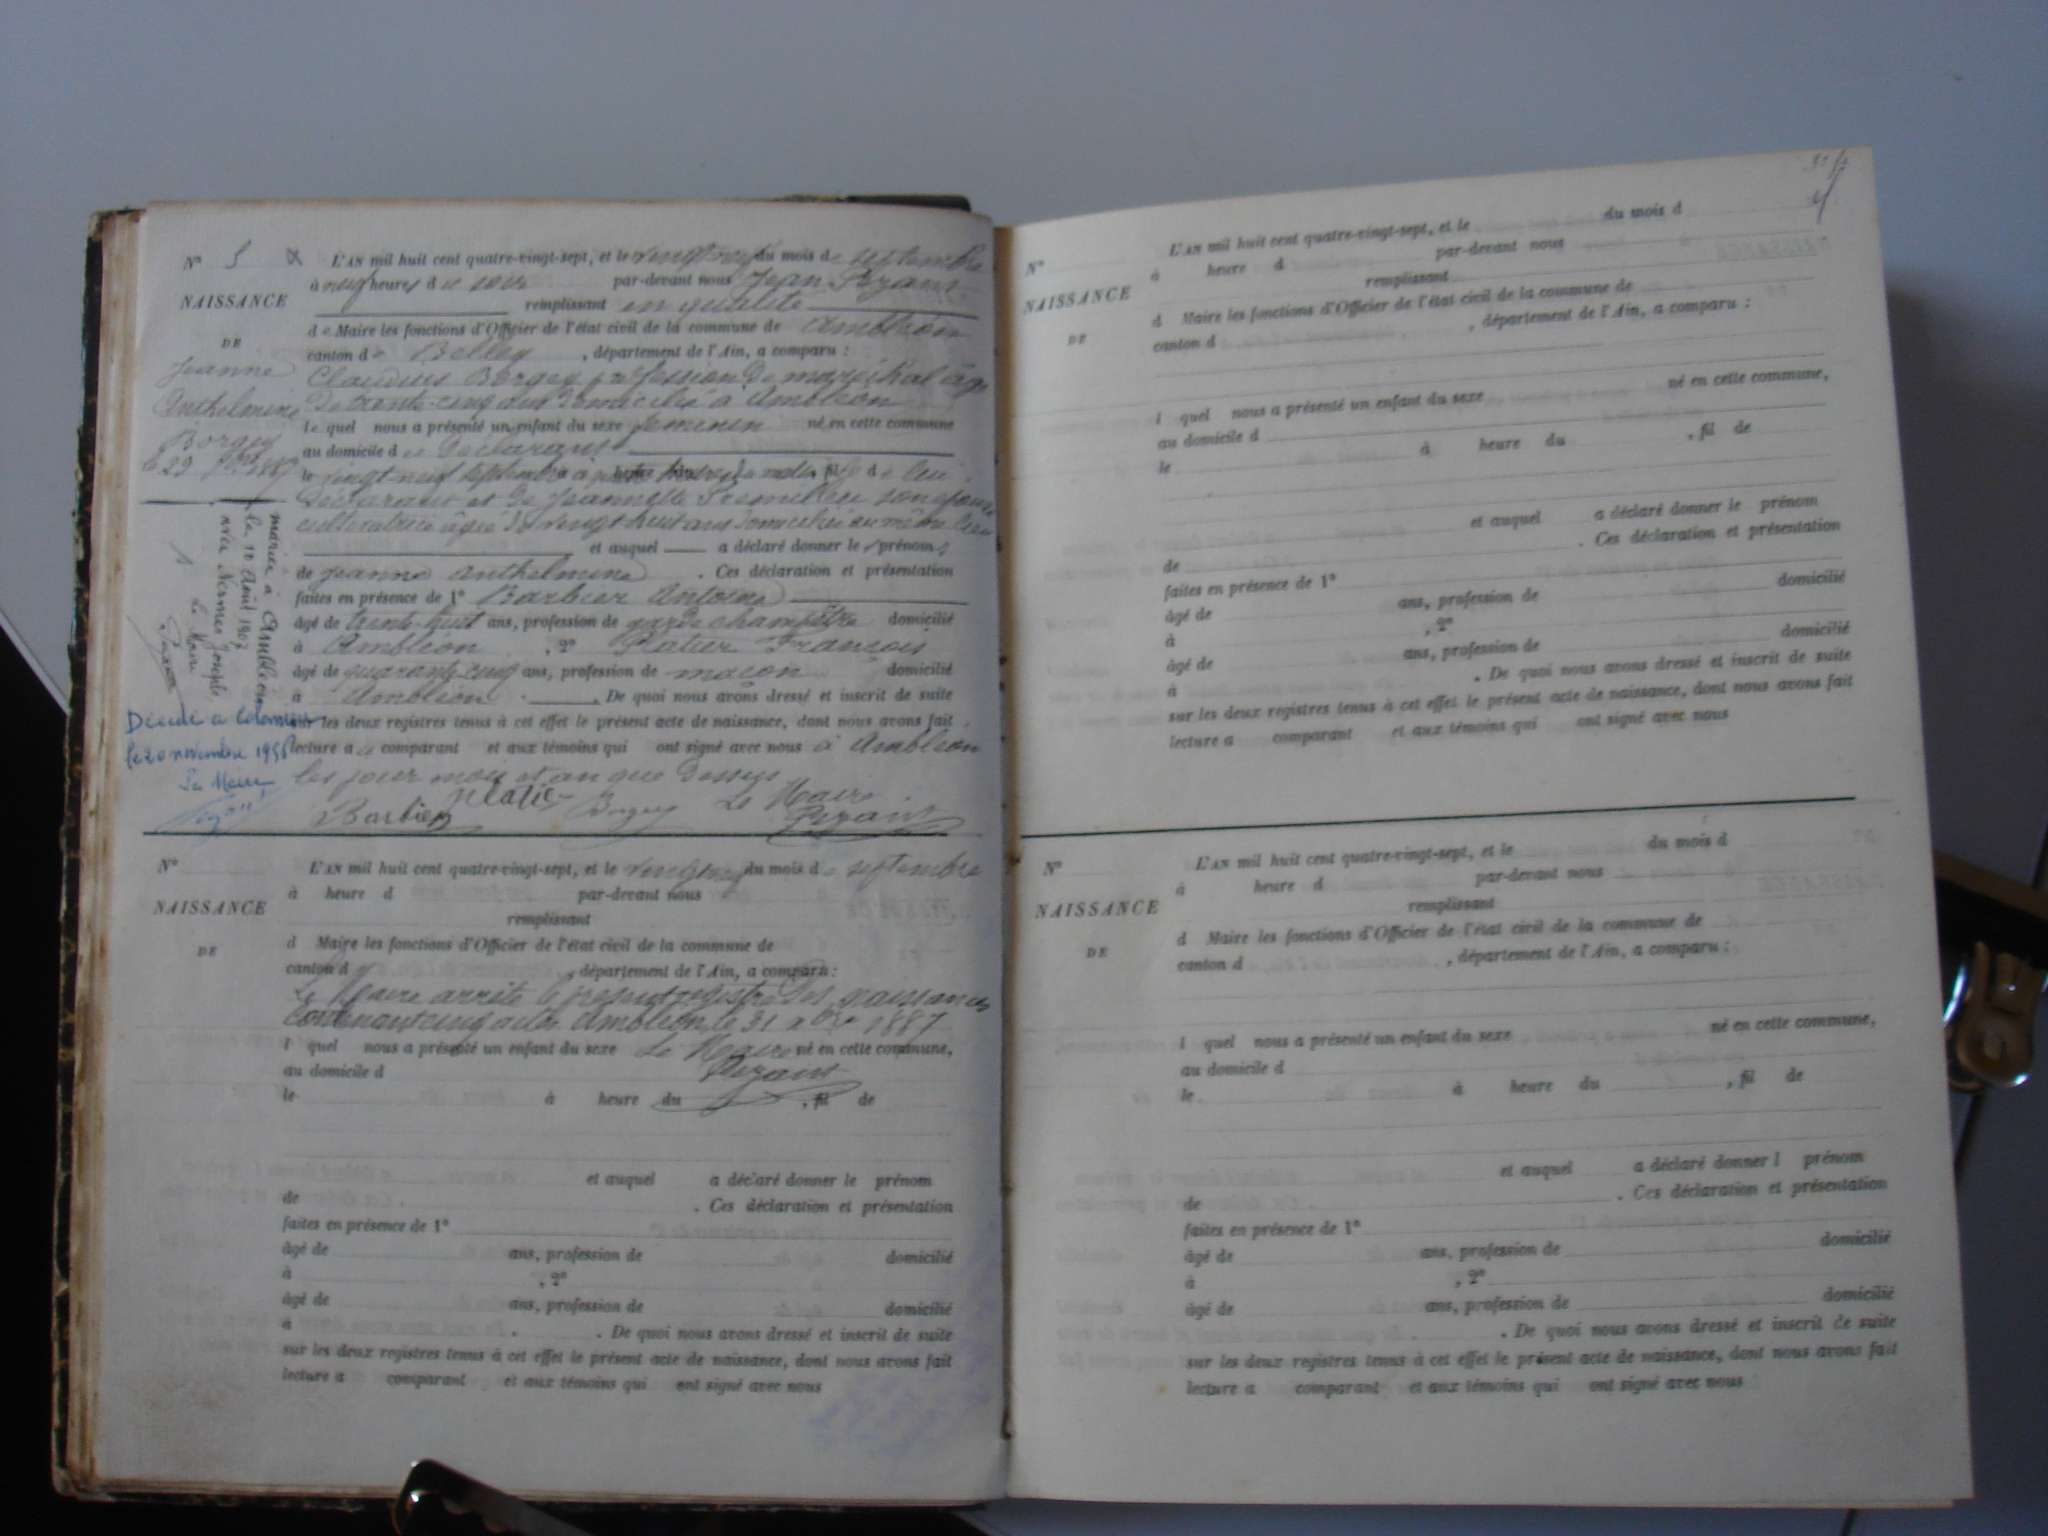 N° 5
NAISSANCE
DE
Jeanne
Anthelmine
Borgey
le 29 7bre 1887
mariée à Ambléon
le 10 Août 1907
avec Joseph
Le Maire
Décédé à
le 20 novembre 1956
Le Maire
L'AN mil huit cent quatre-vingt-sept, et le vingt neuf du mois de septembre
à neuf heures du soir par-devant nous Jean Pezant
remplissant en qualité
de Maire les fonctions d'Officier de l'état civil de la commune de Ambléon
canton de Belley, département de l'Ain, a comparu :
Claudius Borgey profession de maréchal âgé
de trente-cinq ans domicilié à Ambléon
le quel nous a présenté un enfant du sexe féminin né en cette commune
au domicile de Déclarant
le vingt-neuf septembre à heures du matin, fil de lui
Déclarant et de Jeannette son épouse
cultivatrice âgée de vingt huit ans domiciliée au même lieu
et auquel a déclaré donner le s prénoms
de Jeanne Anthelmine. Ces déclaration et présentation
faites en présence de 1° Barbier Antoine
âgé de trente-huit ans, profession de garde champêtre domicilié
à Ambléon, 2° Platier François
âgé de quarante-cinq ans, profession de maçon domicilié
à Ambléon. De quoi nous avons dressé et inscrit de suite
sur les deux registres tenus à cet effet le présent acte de naissance, dont nous avons fait
lecture au comparant et aux témoins qui ont signé avec nous à Ambléon
les jour mois et an que dessus
Barbier Platier Borgey Le Maire
Pezant
N°
NAISSANCE
DE
L'AN mil huit cent quatre-vingt-sept, et le vingt neuf du mois de septembre
à heure d par-devant nous
remplissant
d Maire les fonctions d'Officier de l'état civil de la commune de
canton d , département de l'Ain, a comparu :
Le Maire arrête le présent registre des naissances
contenant cinq actes Ambléon, le 31 Xbre 1887
l quel nous a présenté un enfant du sexe Le Maire né en cette commune,
au domicile d Pezant
le à heure du , fil de
et auquel a déclaré donner le prénom
de . Ces déclaration et présentation
faites en présence de 1°
âgé de ans, profession de domicilié
à , 2°
âgé de ans, profession de domicilié
à . De quoi nous avons dressé et inscrit de suite
sur les deux registres tenus à cet effet le présent acte de naissance, dont nous avons fait
lecture a comparant et aux témoins qui ont signé avec nous
N°
NAISSANCE
DE
L'AN mil huit cent quatre-vingt-sept, et le du mois d
à heure d par-devant nous
remplissant
d Maire les fonctions d'Officier de l'état civil de la commune de
canton d , département de l'Ain, a comparu :
l quel nous a présenté un enfant du sexe né en cette commune,
au domicile d
le à heure du , fil de
et auquel a déclaré donner le prénom
de . Ces déclaration et présentation
faites en présence de 1°
âgé de ans, profession de domicilié
à , 2°
âgé de ans, profession de domicilié
à . De quoi nous avons dressé et inscrit de suite
sur les deux registres tenus à cet effet le présent acte de naissance, dont nous avons fait
lecture a comparant et aux témoins qui ont signé avec nous
N°
NAISSANCE
DE
L'AN mil huit cent quatre-vingt-sept, et le du mois d
à heure d par-devant nous
remplissant
d Maire les fonctions d'Officier de l'état civil de la commune de
canton d , département de l'Ain, a comparu :
l quel nous a présenté un enfant du sexe né en cette commune,
au domicile d
le à heure du , fil de
et auquel a déclaré donner l prénom
de . Ces déclaration et présentation
faites en présence de 1°
âgé de ans, profession de domicilié
à , 2°
âgé de ans, profession de domicilié
à . De quoi nous avons dressé et inscrit de suite
sur les deux registres tenus à cet effet le présent acte de naissance, dont nous avons fait
lecture a comparant et aux témoins qui ont signé avec nous